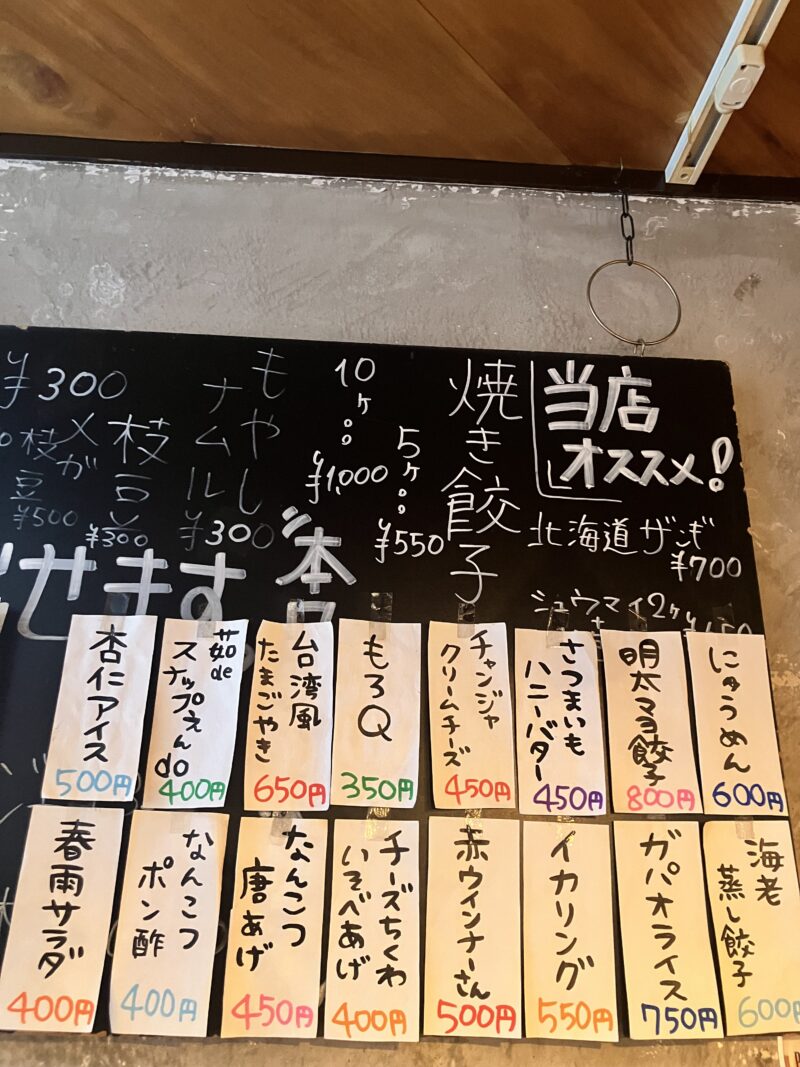 当店
オススメ!
北海道ザンギ
¥700
シュウマイ2ヶ
焼き餃子
5ヶ
¥550
10ヶ
¥1,000
もやし
ナムル
¥300
枝豆
¥300
メガ
枝豆
¥500
¥300
せます
にゅうめん
600円
明太マヨ餃子
800円
さつまいも
ハニーバター
450円
チャンジャ
クリームチーズ
450円
もろQ
350円
台湾風
たまごやき
650円
茹de
スナップえんdo
400円
杏仁アイス
500円
海老
蒸し餃子
600円
ガパオライス
750円
イカリング
550円
赤ウインナーさん
500円
チーズちくわ
いそべあげ
400円
なんこつ
唐あげ
450円
なんこつ
ポン酢
400円
春雨サラダ
400円